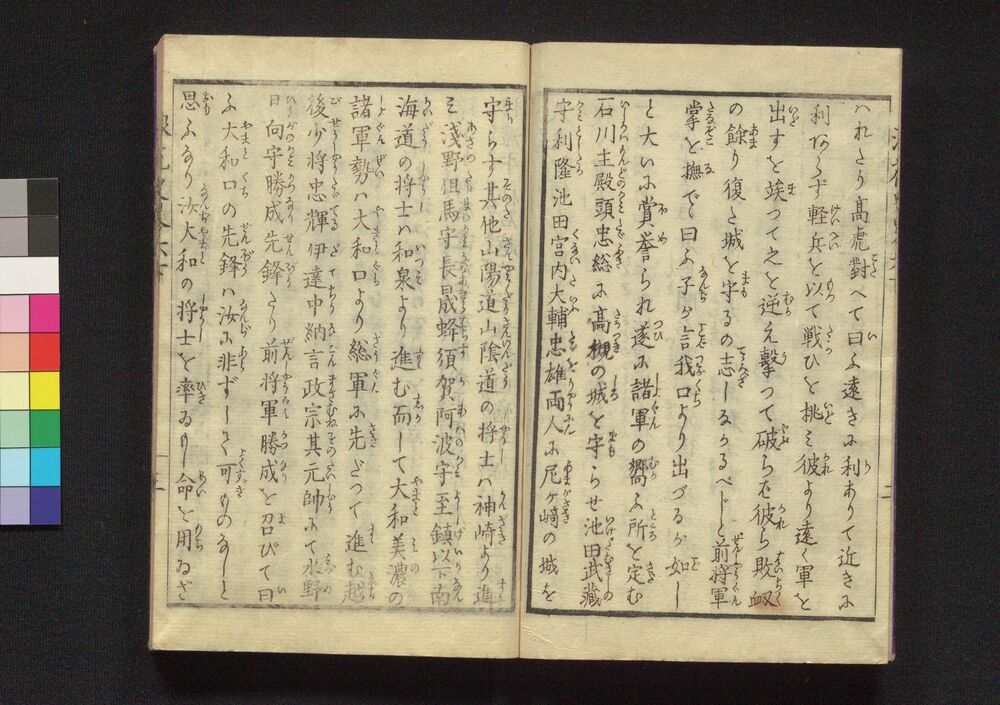 ハれたり高虎對へて曰ふ遠きに利ありて近きに
利あらず軽兵を以て戦ひを挑ミ彼より遠く軍を
出すを竢つて之を逆え擊つて破らバ彼ら敗衂
の餘り復た城を守るの志しるかるべしと前将軍
掌を撫で曰ふ子が言我口より出づるが如し
と大いに賞誉られ遂に諸軍の嚮ふ所を定む
石川主殿頭忠総に高槻の城を守らせ池田武蔵
守利隆池田宮内大輔忠雄両人に尼ヶ﨑の城を
守らす其他山陽道山陰道の将士ハ神崎より進
ミ浅野但馬守長晟蜂須賀阿波守至鎮以下南
海道の将士ハ和泉より進む而して大和美濃の
諸軍勢ハ大和口より総軍に先だつて進む越
後少将忠輝伊達中納言政宗其元帥にて水野
日向守勝成先鋒たり前将軍勝成を召びて曰
ふ大和口の先鋒ハ汝に非ずして可ものなしと
思ふなり汝大和の将士を率ゐ命を用ゐざ